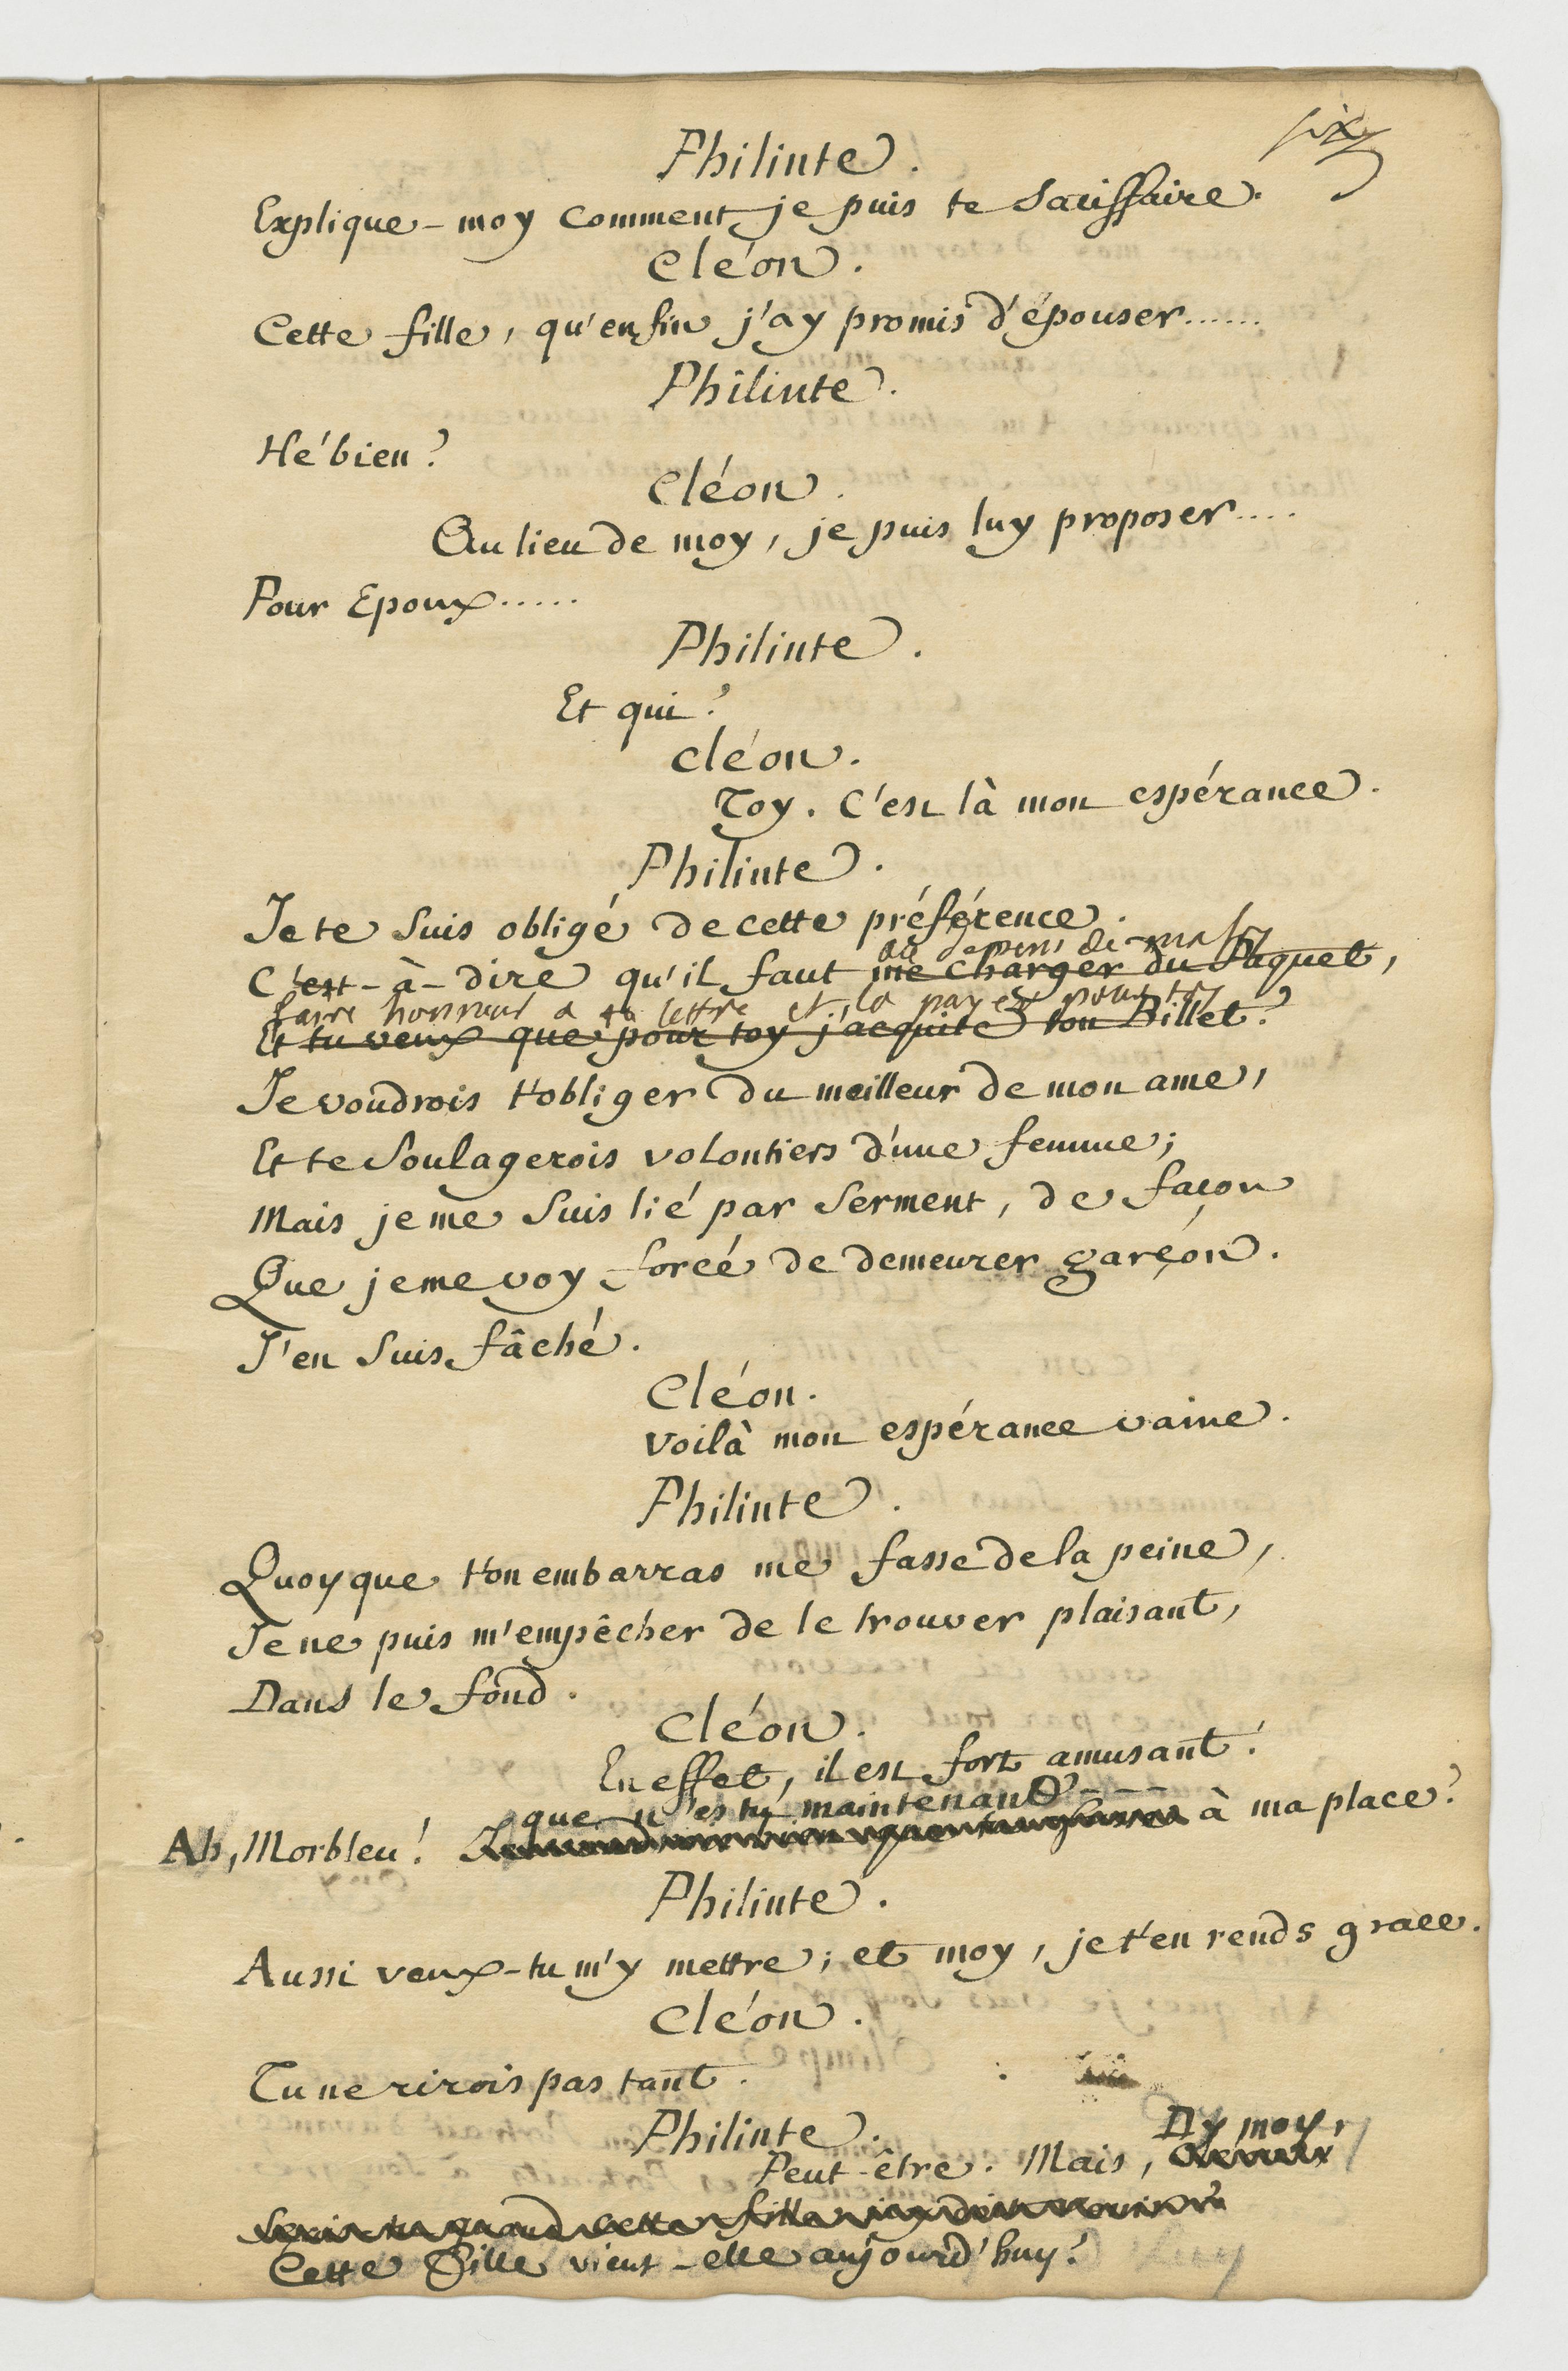 six
Philinte.
Explique-moy comment je puis te Satisfaire.
Cléon.
Cette fille, qu'enfin j'ay promis d'épouser......
Philinte.
Hé bien?
Cléon.
Au lieu de moy, je puis luy proposer....
Pour Epoux.....
Philinte.
Et qui?
Cléon.
Toy. C'est là mon espérance.
Philinte.
Je te Suis obligé de cette préférence.
au depens de ma foy
C'est-à-dire qu'il faut me charger du Paquet,
faire honneur a ta lettre et la payer pour toy
Et tu veux que pour toy j'acquite ton Billet?
Je voudrois t'obliger du meilleur de mon ame,
Et te Soulagerois volontiers d'une femme;
Mais je me Suis lié par Serment, de façon
Que je me voy forcé de demeurer garçon.
J'en Suis fâché.
Cléon.
Voilà mon espérance vaine.
Philinte.
Quoyque ton embarras me fasse de la peine,
Je ne puis m'empêcher de le trouver plaisant,
Dans le fond.
Cléon.
En effet, il est fort amusant!
que n'es tu maintenant
Ah, Morbleu! à ma place?
Philinte.
Aussi veux-tu m'y mettre; et moy, je t'en rends grace.
Cléon.
Tu ne rirois pas tant.
Philinte.
Dy moy,
Peut-être. Mais,
Cette fille vient-elle aujourd'huy?